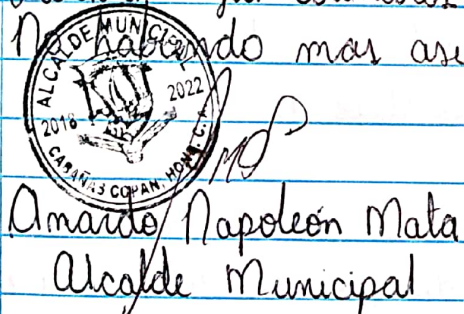 No habiendo mas asu
ALCALDE MUNICIPAL
2018 2022
CABAÑAS COPAN, HOND. C.A.
Amardo Napoleón Mata
Alcalde Municipal